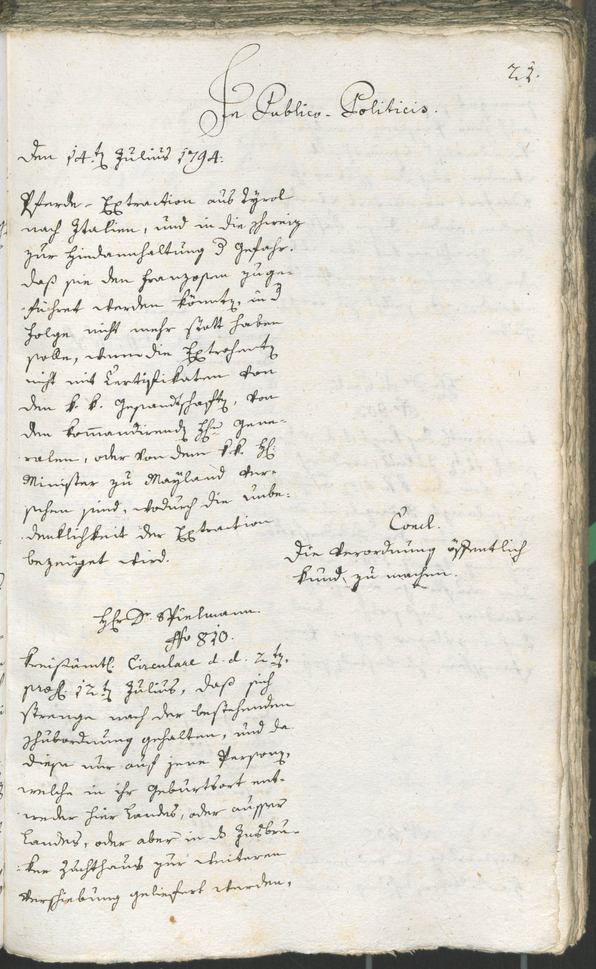 22.
In Publico-Politicis.
Den 14.ten Julius 1794.
Pferde-Extraction aus Tyrol
nach Italien, und in die Schweiz
zur Hindannhaltung d Gefahr,
daß sie den Franzosen zuge-
führet werden könnten, in d
Folge nicht mehr statt haben
solle, wenn die Extrahenten
nicht mit Certifikaten von
den k. k. Gesandtschaften, von
den kom̅andirenden H: Gene-
ralen, oder von dem k. k. H:
Minister zu Mayland ver-
sehen sind, wodurch die Unbe-
denklichkeit der Extraction
bezeuget wird.
Concl.
Die Verordnung öffentlich
kund zu machen.
Hr. Dr. Spielmann.
No 810.
Kreisämtl. Circulare d. d. 2.ten,
præs. 12.ten Julius, daß sich
strenge nach der bestehenden
Schubordnung gehalten, und da
diese nur auf jene Personen,
welche in ihr Geburtsort ent-
weder hier Landes, oder ausser
Landes, oder aber in d Insbru-
ker Zuchthaus zur weiteren
Verschiebung geliefert werden,